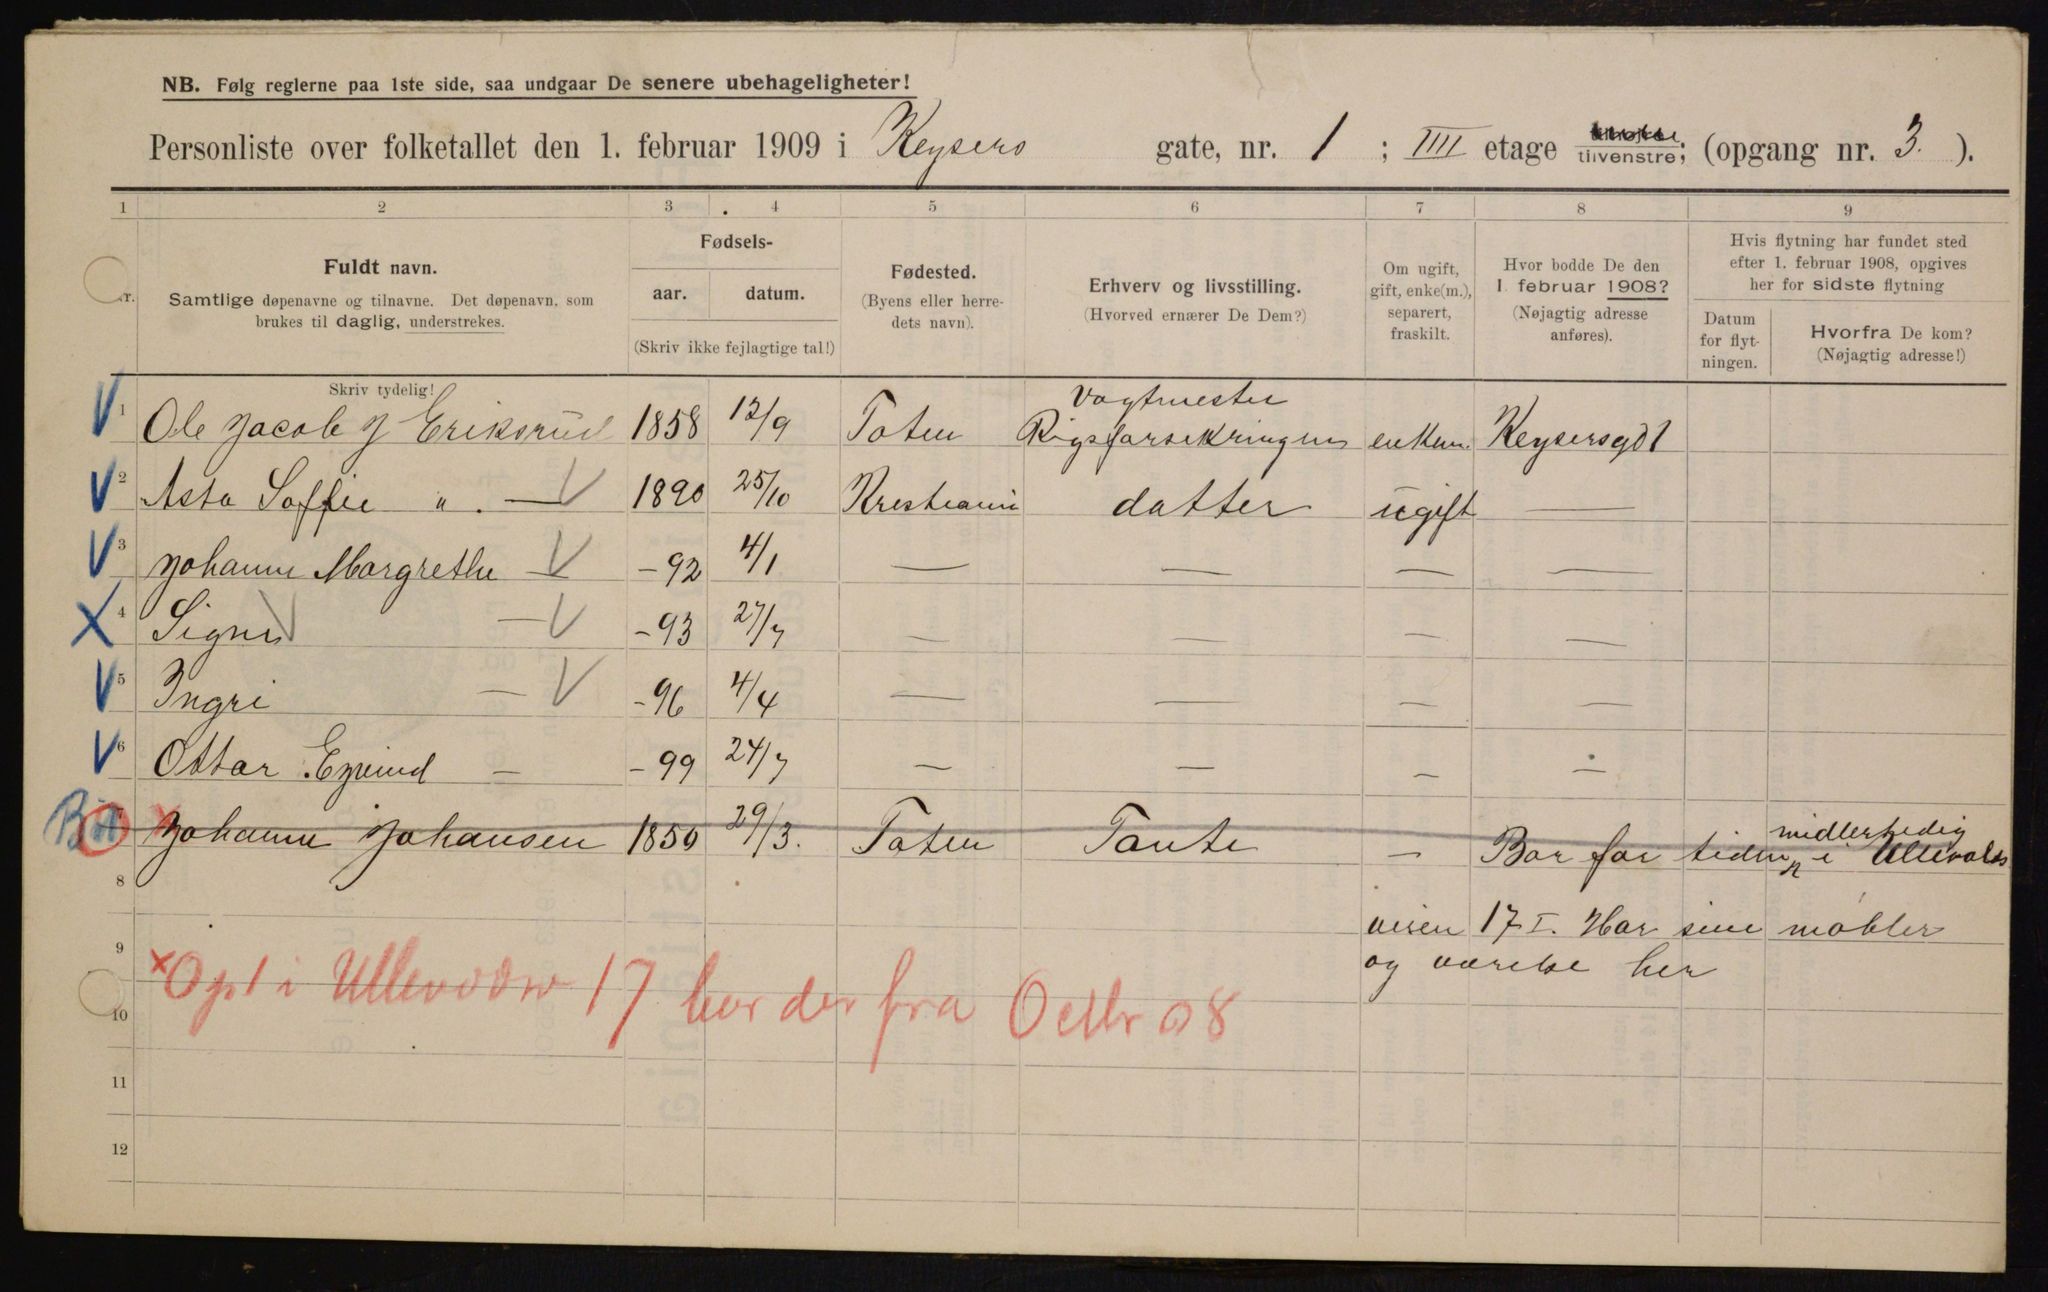 NB. Følg reglerne paa 1ste side, saa undgaar De senere ubehageligheter!
Personliste over folketallet den 1. februar 1909 i Keysers gate, nr. 1 ; IIII etage tilvenstre; (opgang nr. 3. ).
1 2 3 4 5 6 7 8 9
Fuldt navn.
Samtlige døpenavne og tilnavne. Det døpenavn, som
brukes til daglig, understrekes.
Fødsels-
aar. datum.
(Skriv ikke fejlagtige tal!)
Fødested.
(Byens eller herre-
dets navn).
Erhverv og livsstilling.
(Hvorved ernærer De Dem?)
Om ugift,
gift, enke(m.),
separert,
fraskilt.
Hvor bodde De den
1. februar 1908?
(Nøjagtig adresse
anføres).
Hvis flytning har fundet sted
efter 1. februar 1908, opgives
her for sidste flytning
Datum
for flyt-
ningen.
Hvorfra De kom?
(Nøjagtig adresse!)
Skriv tydelig!
Vagtmester
V 1 Ole Jacob J Eriksrud 1858 12/9 Toten Rigsforsikringen enkem. Keysersgd 1
V 2 Asta Soffie " . — V 1890 25/10 Krestiania datter ugift —
V 3 Johanne Margrethe — V - 92 4/1 — — — —
X 4 Signe V — V - 93 27/7 — — — —
V 5 Ingri — V - 96 4/4 — — — —
V 6 Ottar Ejvind — - 99 24/7 — — — —
midlertidig
x Johanne Johansen 1850 29/3. Toten Tante — Bor for tiden i Ullevolds
8
veien 17 I. Har sine møbler
9
og værelse her
x Opt i Ullevolsv 17 bor der fra Octbr 08
10
11
12